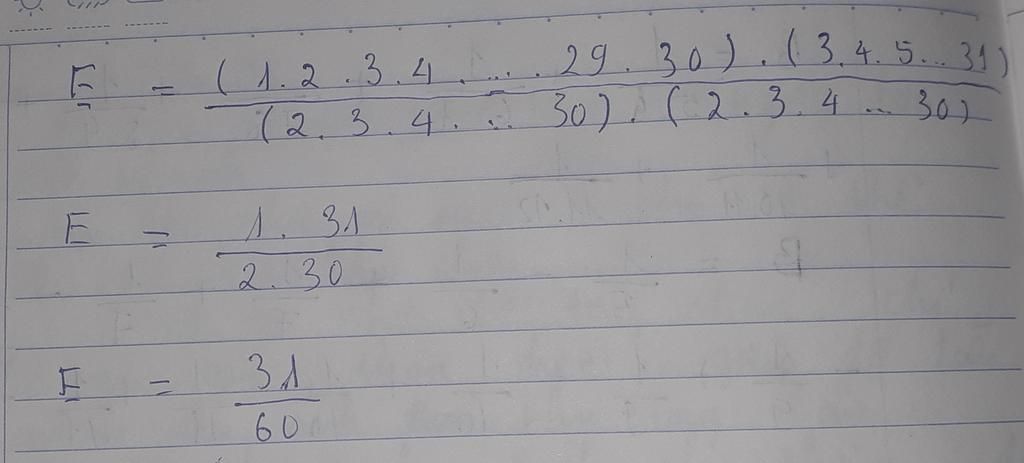 E = (1.2.3.4. ... .29.30).(3.4.5...31)
(2.3.4. ... 30).(2.3.4 ... 30)
E = 1.31
2.30
E = 31
60